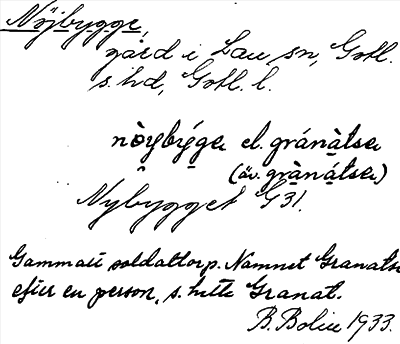 Nöjbygge,
gård i Lau sn, Gotl.
s. hd, Gotl. l.
nòybýge el. gránàtsa
(äv. grànátsa)
Nybygget G31.
Gammalt soldattorp. Namnet Granatsa
efter en person, s. hette Granat.
B. Bolin 1933.